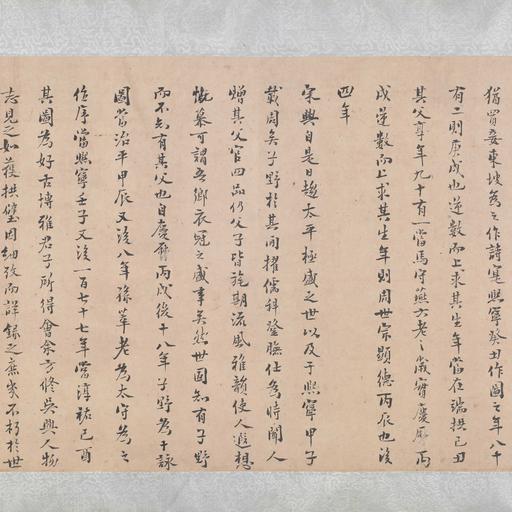 猶買妾東坡為之作詩寔熙寧癸丑作圖之年八十
有二則庚戌也逆數而上求其生年當在端拱己丑
其父享年九十有一當馬守燕六老之歲實慶曆丙
戌逆數而上求其生年則周世宗顯德丙辰也後
四年
宋興自是日趨太平極盛之世以及于熙寧甲子
載周矣子野於其間擢儒科登膴仕為時聞人
贈其父官四品仍父子皆旄期流風雅韻使人遐想
慨慕可謂吾鄉衣冠之盛事矣然世固知有子野
而不知有其父也自慶曆丙戌後十八年子野為十詠
圖當治平甲辰又後八年孫莘老為太守為之
作序當熙寧壬子又後一百七十七年當淳祐己酉
其圖為好古博雅君子所得會余方脩吳興人物
志見之如獲拱璧因細攷而詳錄之庶幾不朽於世